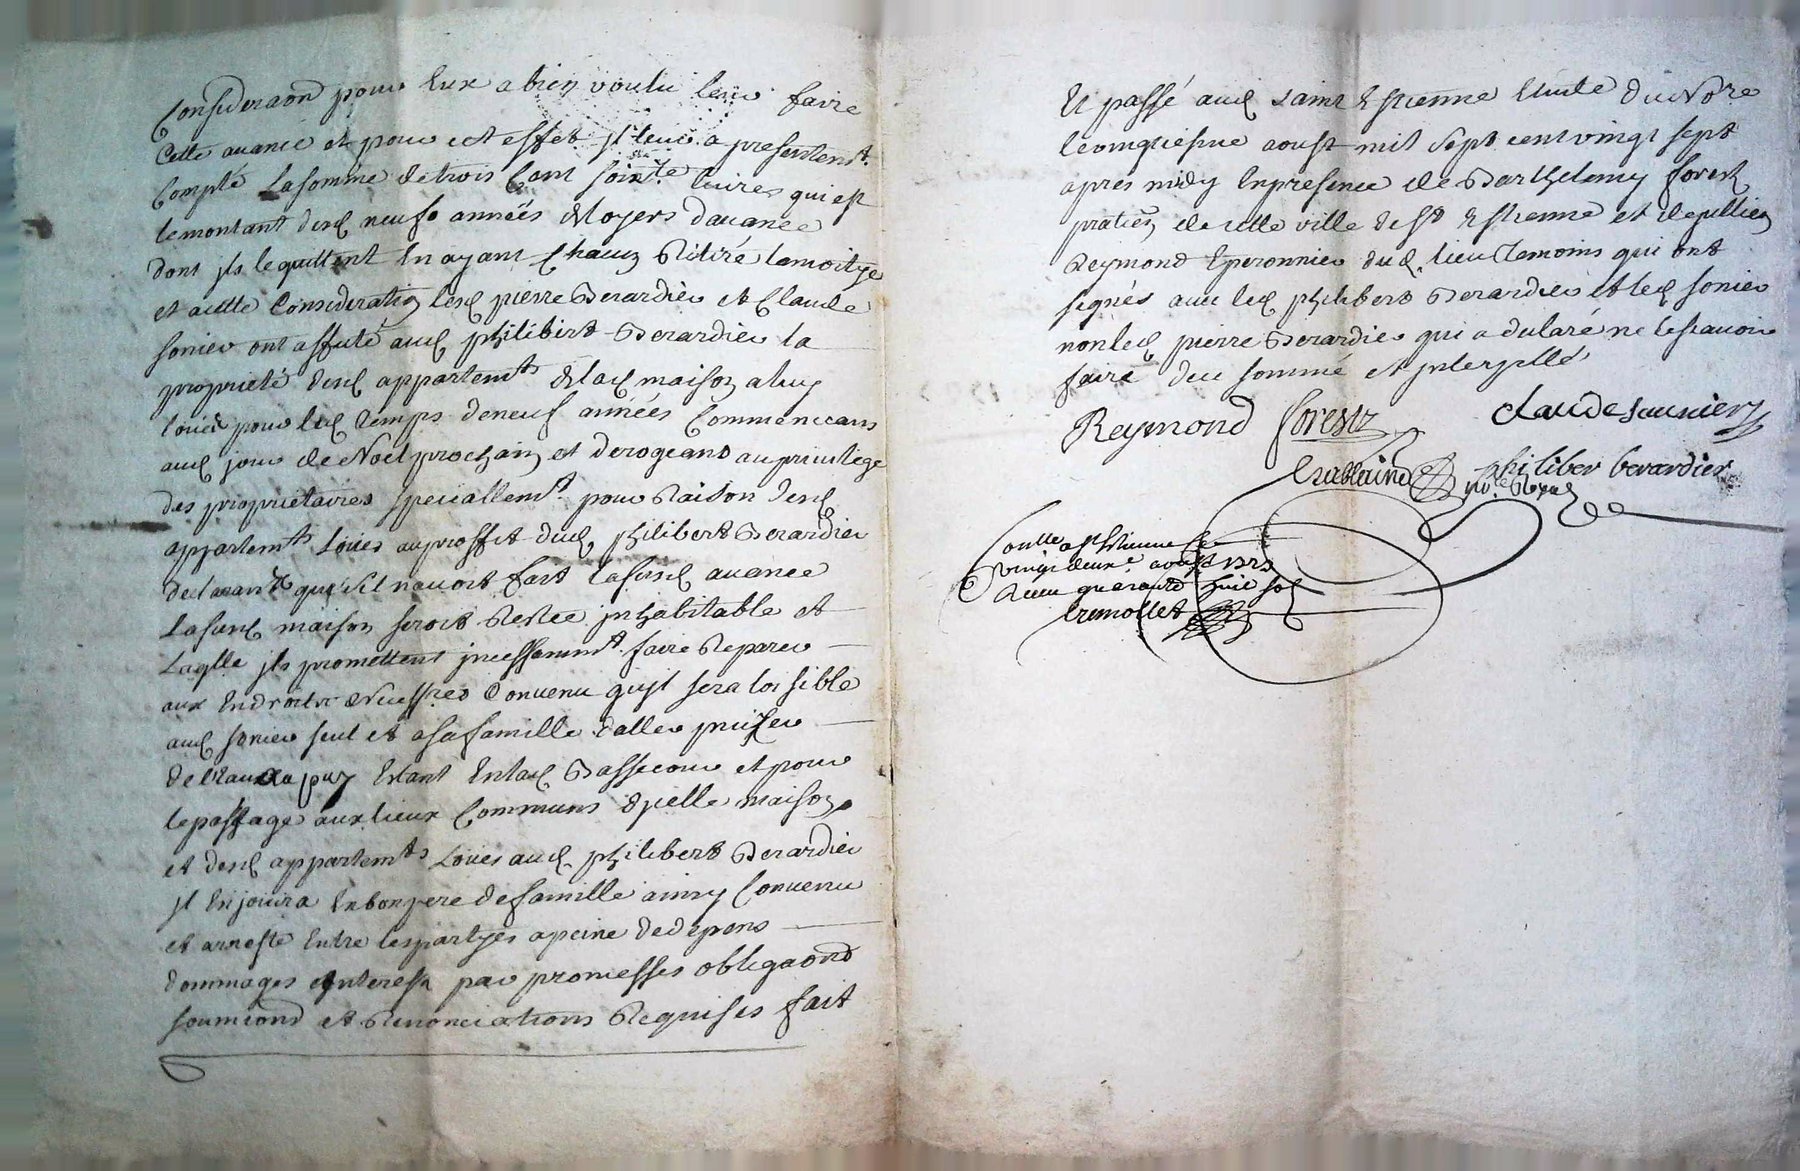 Consideraon pour Eux a bien voulu leur faire
Cette avance et pour cet effet jl leur a presentemt
Compté la somme de trois Cent soixte livres qui est
le montant desd neufs années de loyers d'avance
dont jls le quittent En ayant Chacun Rétiré la moitye
et a cette Consideration lesd pierre Berardier et Claude
sonier ont affecté aud philibert Berardier la
proprieté desd appartemts de lad maison a luy
loués pour led temps de neuf années Commencant
aud jour de Noel prochain et derogeand au privilege
des proprietaires speciallemt pour Raison desd
appartemts Loués au proffit dud philibert Berardier
declarant que s'il n'avoit fait la susd avance
la susd maison seroit Restée jnhabitable et
Laqlle jls promettent jncessamnt faire Reparer
aux Endroits necessres Convenu qujl sera loisible
aud sonier seul et a sa famille d'aller puizer
de l'eau au puy Estant En lad Bassecour et pour
le passage aux lieux Communs d'jcelle maison
et desd appartemts Loués aud philibert Berardier
jl En jouira En bon pere de famille ainsy Convenu
et arresté Entre les partyes a peine de depens
dommages et jnterests par promesses obligaons
soumions et Renonciations Requises fait
Et passé aud saint Estienne Etude du Nore
le vingtiesme aoust mil sept cent vingt sept
apres midy En presence de Barthelemy forest
praticn de cette ville de St Estienne et de jullien
Reymond Eperonnier dud lieu temoins qui ont
signés avec led philibert Berardier et led sonier
non led pierre Berardier qui a declaré ne le scavoir
faire de ce sommé et jnterpellé
Reymond forestz claude saunier
philiber berardier
no.re Royal
Conlle a St Etienne le
vingt deuxe aoust 1727
Receu quarante huit sols
Tremollet